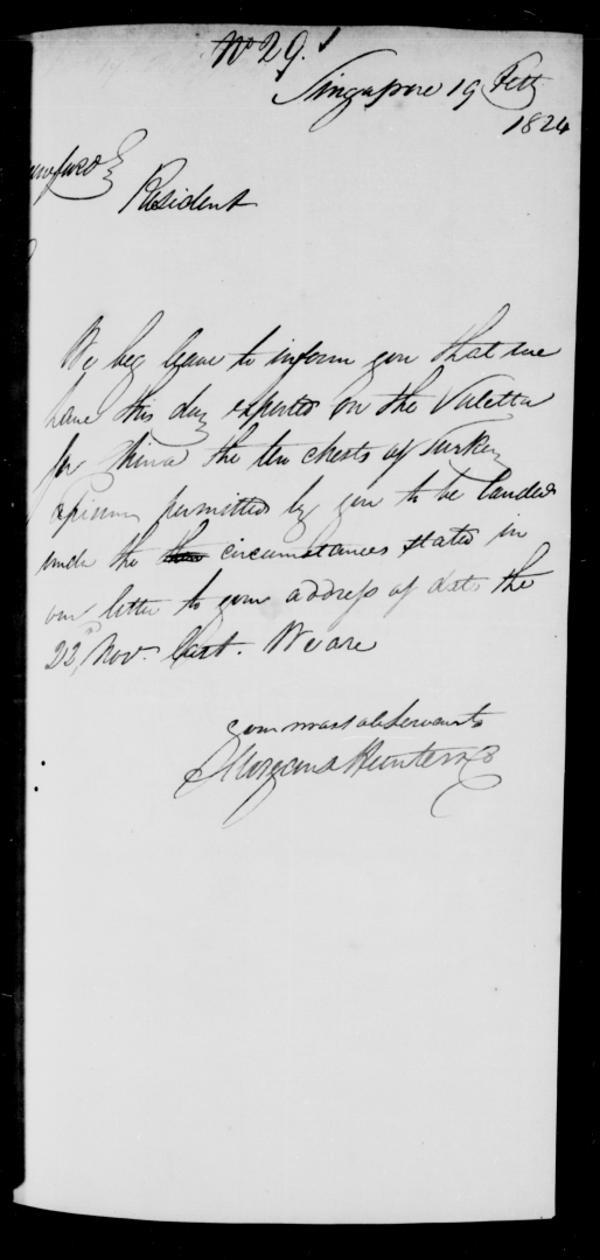 No 29.
Singapore 19 Feby
1824
awfurd Esq
Resident
We beg leave to inform you that we
have this day exported on the Valetta
for China the ten chests of Turkey
opium permitted by you to be landed
under the circumstances stated in
our letter to your address of date the
22d Nov. last. We are
your most ob Servants
Morgans Hunter & Co